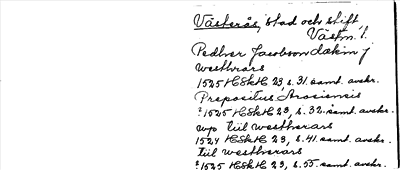 Västerås, stad och stift
Västm. l.
Pedher Jacobson dækin j
westhrars
1525 HSkH 23 s. 31. samt. avskr.
Prepositus Arosiensis
?1525 HSkH 23, s. 32. samt. avskr.
wp til westherars
1524 HSkH 23, s. 41. samt. avskr.
til westherars
?1525 HSkH 23, s. 55. samt. avskr.